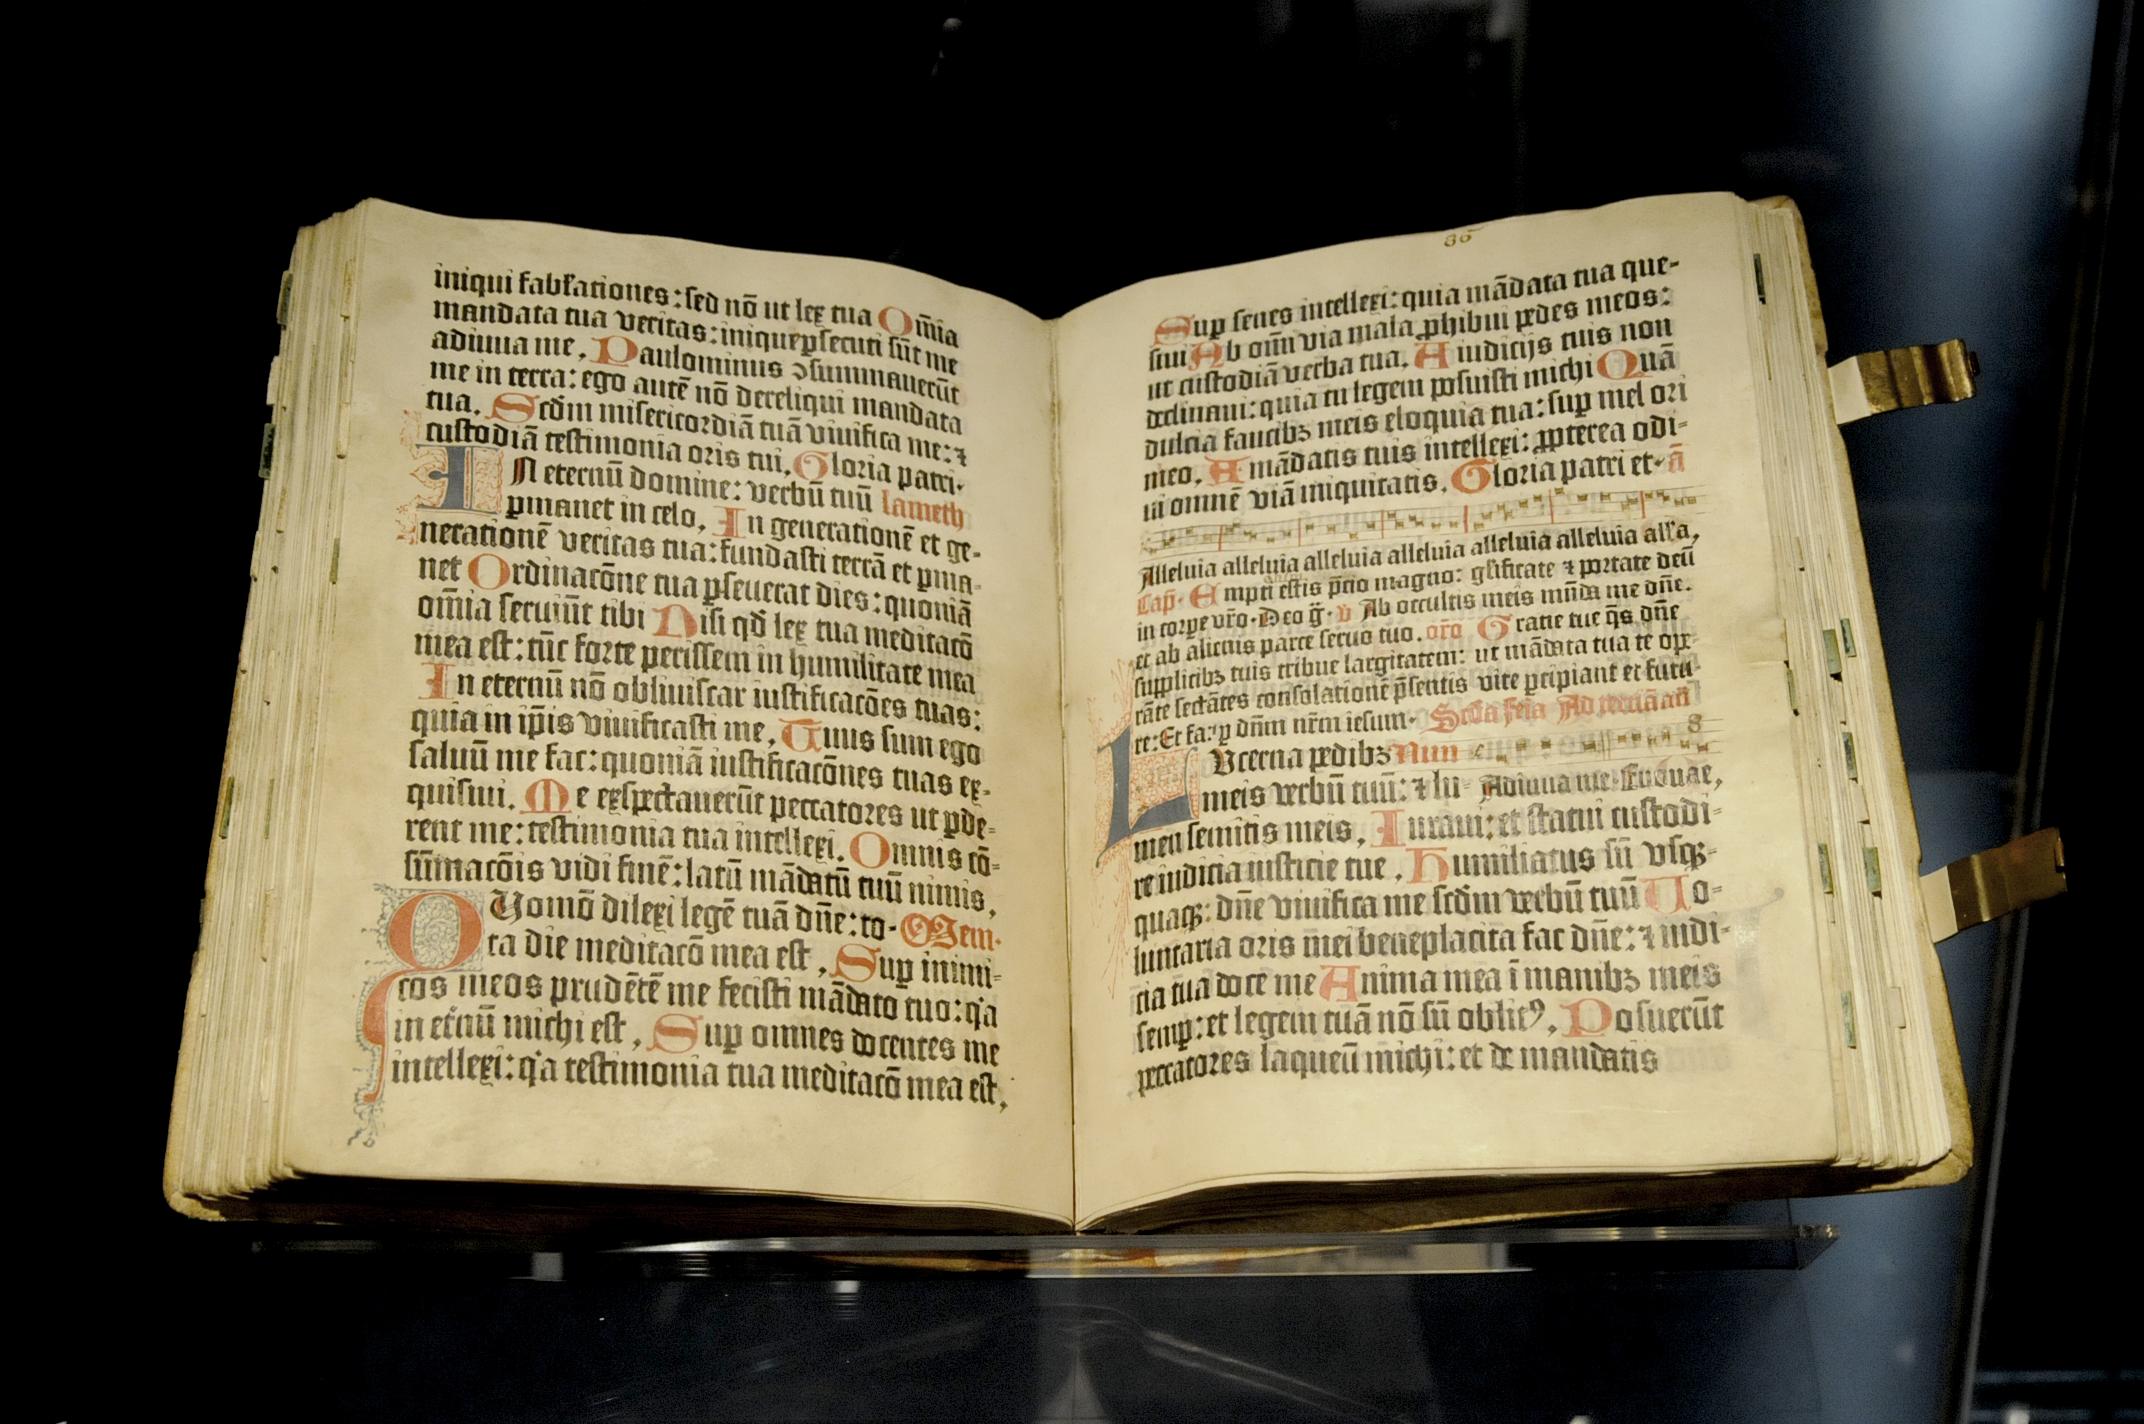 iniqui fabľationes: sed nō ut lex tua Om̄ia
mandata tua veritas: inique ꝑsecuti sūt me
adiuua me. Paulominus ↄsummauerūt
me in terra: ego autē nō dereliqui mandata
tua. Scd̄m misericordiā tuā viuifica me: ⁊
custodiā testimonia oris tui. Gloria patri.
In eternū domine: verbū tuū lameth
ꝑmanet in celo. In generationē et ge-
nerationē veritas tua: fundasti terrā et ꝑma-
net Ordinacōne tua ꝑseuerat dies: quoniā
om̄ia seruiūt tibi Nisi qd̄ lex tua meditacō
mea est: tūc forte perissem in humilitate mea
In eternū nō obliuiscar iustificacōes tuas:
quia in ip̄is viuificasti me. Tuus sum ego
saluū me fac: quoniā iustificacōnes tuas ex-
quisiui. Me exspectauerūt peccatores ut ꝑde-
rent me: testimonia tua intellexi. Omnis cō-
sūmacōis vidi finē: latū mādatū tuū nimis.
Quomō dilexi legē tuā dn̄e: to- Mem.
ta die meditacō mea est. Suꝑ inimi-
cos meos prudētē me fecisti mādato tuo: qa
in et'nū michi est. Suꝑ omnes docentes me
intellexi: qa testimonia tua meditacō mea est.
86
Suꝑ senes intellexi: quia mādata tua que-
siui Ab omī via mala ꝓhibui pedes meos:
ut custodiā verba tua. A iudicijs tuis non
declinaui: quia tu legem posuisti michi Quā
dulcia faucibꝫ meis eloquia tua: suꝑ mel ori
meo. A mādatis tuis intellexi: ꝓpterea odi-
ui omnē viā iniquitatis. Gloria patri et. ā
Alleluia alleluia alleluia alleluia alleluia alleluia all'a,
Cap̄. Empti estis p̄cio magno: gl'ificate ⁊ portate deū
in corpe vr̄o. Deo g̅. v Ab occultis meis mūda me dn̄e.
et ab alienis parce seruo tuo. oro Gratie tue q̄s dn̄e
supplicibꝫ tuis tribue largitatem: ut mādata tua te ope-
rāte sectātes consolationē p̄sentis vite ꝑcipiant et futu-
re: Et fa. ꝑ dn̄m nr̄m iesum. Sc̄da feīa Ad terciā an̄
Lucerna pedibꝫ Nun 8
meis verbū tuū: ⁊ lu- Adiuua me. Euouae,
men semitis meis. Iuraui: et statui custodi-
re iudicia iusticie tue. Humiliatus sū vsqꝫ-
quaqꝫ: dn̄e viuifica me scd̄m verbū tuū Uo-
luntaria oris mei beneplacita fac dn̄e: ⁊ iudi-
cia tua doce me Anima mea ī manibꝫ meis
semꝑ: et legem tuā nō sū oblitꝰ. Posuerūt
peccatores laqueū michi: et de mandatis